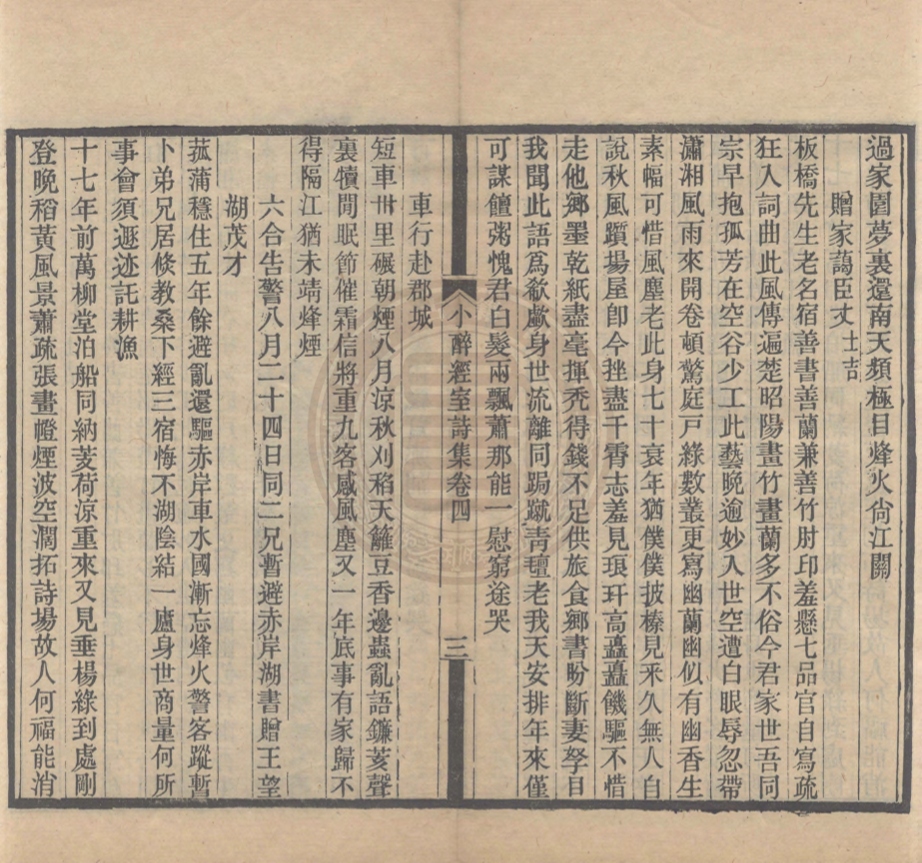 過家園夢裏還南天頻極目烽火尙江關
贈家藹臣丈士吉
板橋先生老名宿善書善蘭兼善竹肘印羞懸七品官自寫疏
狂入詞曲此風傳遍楚昭陽畫竹畫蘭多不俗今君家世吾同
宗早抱孤芳在空谷少工此藝晚逾妙入世空遭白眼辱忽帶
瀟湘風雨來開卷頓驚庭戸綠數叢更寫幽蘭幽似有幽香生
素幅可惜風塵老此身七十衰年猶僕僕披榛見采久無人自
說秋風躓場屋卽今挫盡干霄志羞見琅玕高矗矗饑驅不惜
走他鄕墨乾紙盡毫揮禿得錢不足供旅食鄕書盼斷妻孥目
我聞此語爲欷歔身世流離同跼蹴靑氊老我天安排年來僅
可謀饘粥愧君白髮兩飄蕭那能一慰窮途哭
小醉經室詩集卷四
三
車行赴郡城
短車卅里碾朝煙八月涼秋刈稻天籬豆香邊蟲亂語鐮芰聲
裏犢閒眠節催霜信將重九客感風塵又一年底事有家歸不
得隔江猶未靖烽煙
六合告警八月二十四日同二兄暫避赤岸湖書贈王望
湖茂才
菰蒲穩住五年餘避亂還驅赤岸車水國漸忘烽火警客蹤暫
卜弟兄居倐教桑下經三宿悔不湖陰結一廬身世商量何所
事會須遯迹託耕漁
十七年前萬柳堂泊船同納芰荷涼重來又見垂楊綠到處剛
登晚稻黃風景蕭疏張畫幛煙波空濶拓詩場故人何福能消